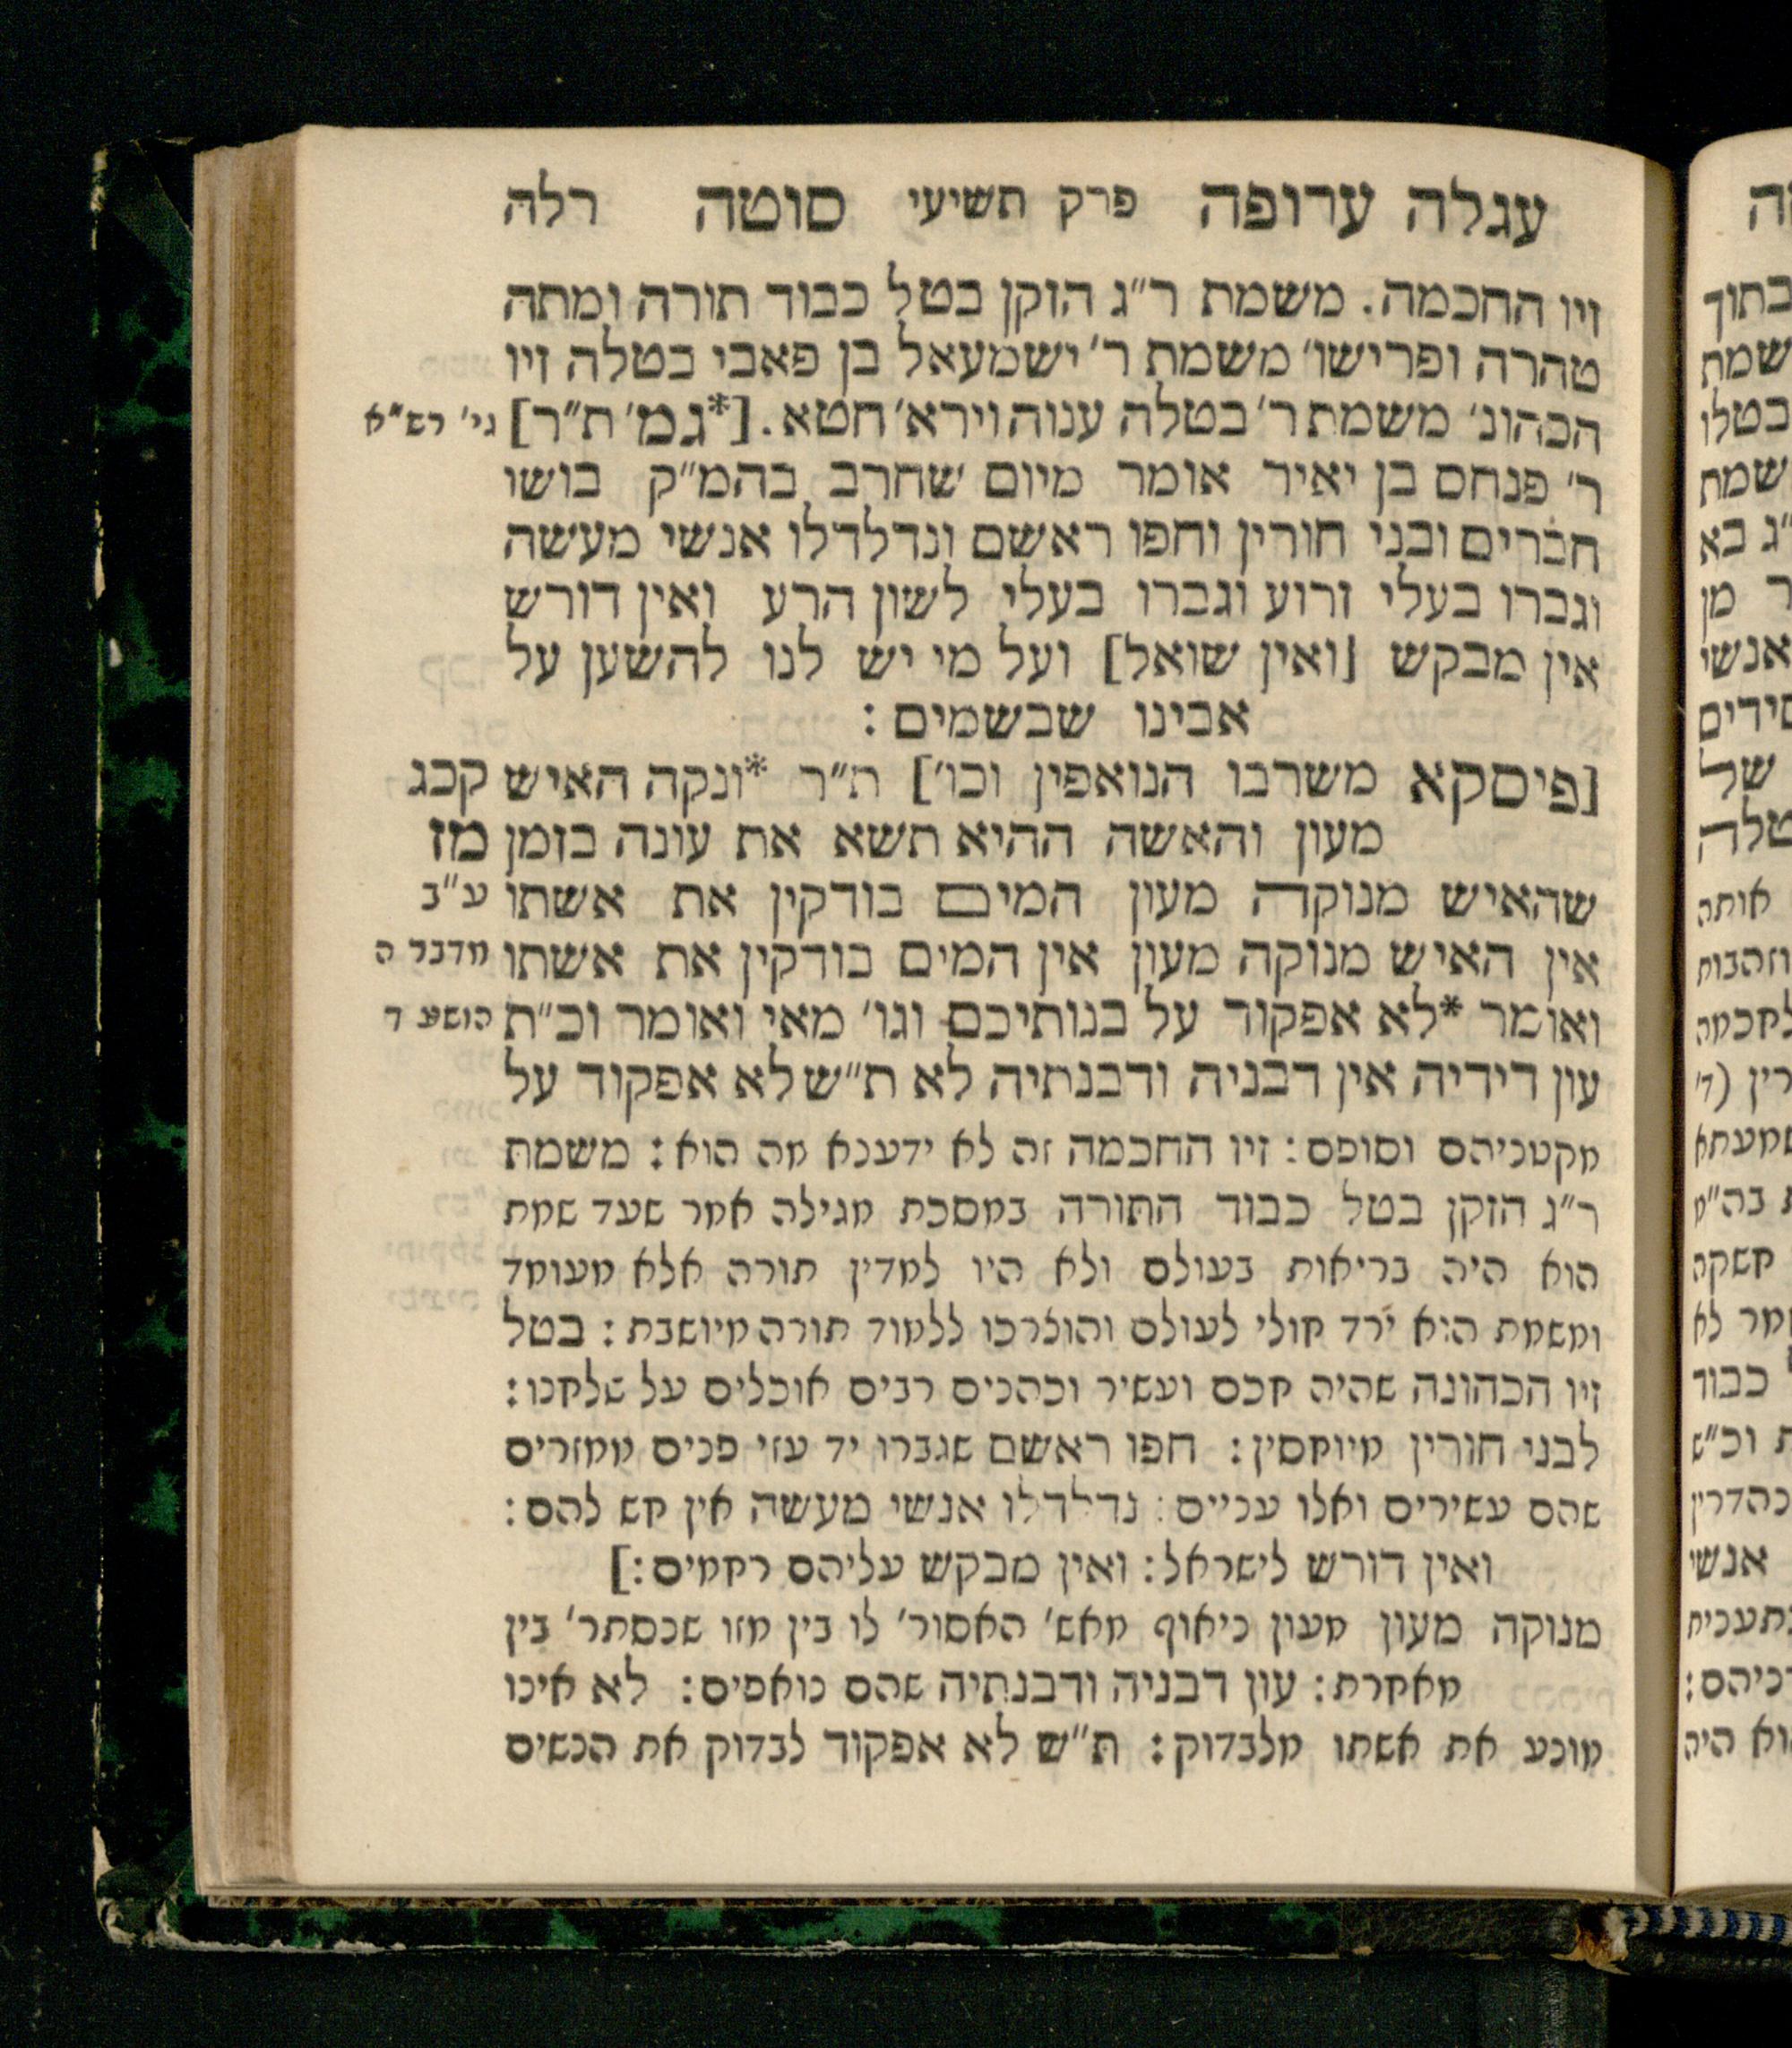 עגלה ערופה פרק תשיעי סוטה רלה
זיו החכמה. משמת ר״ג הזקן בטל כבוד תורה ומתה
טהרה ופרישו׳ משמת ר׳ ישמעאל בן פאבי בטלה זיו
הכהונ׳ משמת ר׳ בטלה ענוה וירא׳ חטא. [*גמ׳ ת״ר] גי׳ רש״א
ר׳ פנחס בן יאיר אומר מיום שחרב בהמ״ק בושו
חברים ובני חורין וחפו ראשם ונדלדלו אנשי מעשה
וגברו בעלי זרוע וגברו בעלי לשון הרע ואין דורש
אין מבקש [ואין שואל] ועל מי יש לנו להשען על
אבינו שבשמים:
[פיסקא משרבו הנואפין וכו׳] ת״ר *ונקה האיש קכג
מעון והאשה ההיא תשא את עונה בזמן מז
שהאיש מנוקה מעון המים בודקין את אשתו ע״ב
אין האיש מנוקה מעון אין המים בודקין את אשתו מדבר ה
ואומר *לא אפקוד על בנותיכם וגו׳ מאי ואומר וכ״ת הושע ד
עון דידיה אין דבניה ודבנתיה לא ת״ש לא אפקוד על
מקטניהם וסופם: זיו החכמה זה לא ידענא מה הוא: משמת
ר״ג הזקן בטל כבוד התורה במסכת מגילה אמר שעד שמת
הוא היה בריאות בעולם ולא היו למדין תורה אלא מעומד
ומשמת הוא ירד חולי לעולם והוצרכו ללמוד תורה מיושבת: בטל
זיו הכהונה שהיה חכם ועשיר וכהנים רבים אוכלים על שלחנו:
לבני חורין מיוחסין: חפו ראשם שגברו יד עזי פנים ממזרים
שהם עשירים ואלו עניים: נדלדלו אנשי מעשה אין חש להם:
ואין דורש לישראל: ואין מבקש עליהם רחמים:]
מנוקה מעון מעון ניאוף מאש׳ האסור׳ לו בין מזו שנסתר׳ בין
מאחרת: עון דבניה ודבנתיה שהם נואפים: לא אינו
מונע את אשתו מלבדוק: ת״ש לא אפקוד לבדוק את הנשים